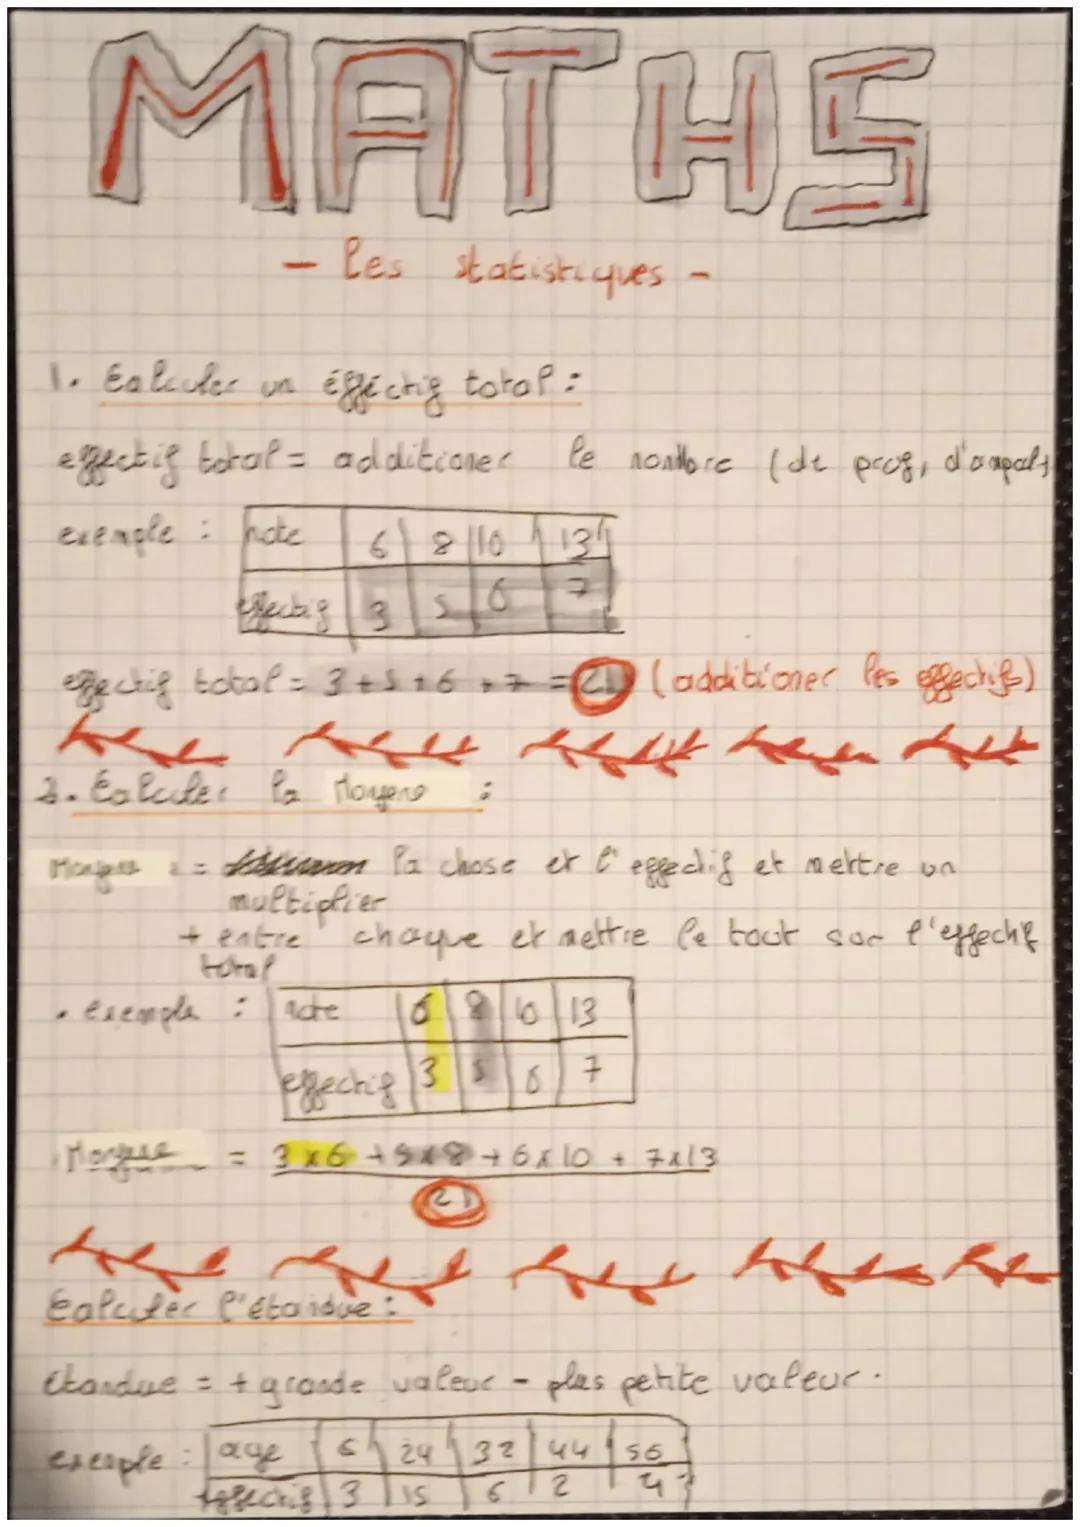 MATHS
- les statistiques -
1. Calculer un éffectif total :
effectif total = additioner le nombre (de prof, d'ampals
exemple : note 6 8 10 13
effectif 3 5 6 7
effectif total = 3+5+6+7 = 21 (additioner les effectifs)
2. Calculer la Moyene :
= la chose et l'effectif et mettre un
multiplier
+ entre chaque et mettre le tout sur l'effectif
total
• exemple : note 6 8 10 13
effectif 3 5 6 7
Moyene = 3x6 + 5x8 + 6x10 + 7x13
21
Calculer l'étandue :
étandue = + grande valeur - plus petite valeur.
exemple : age 6 24 32 44 56
effectif 3 15 6 2 4